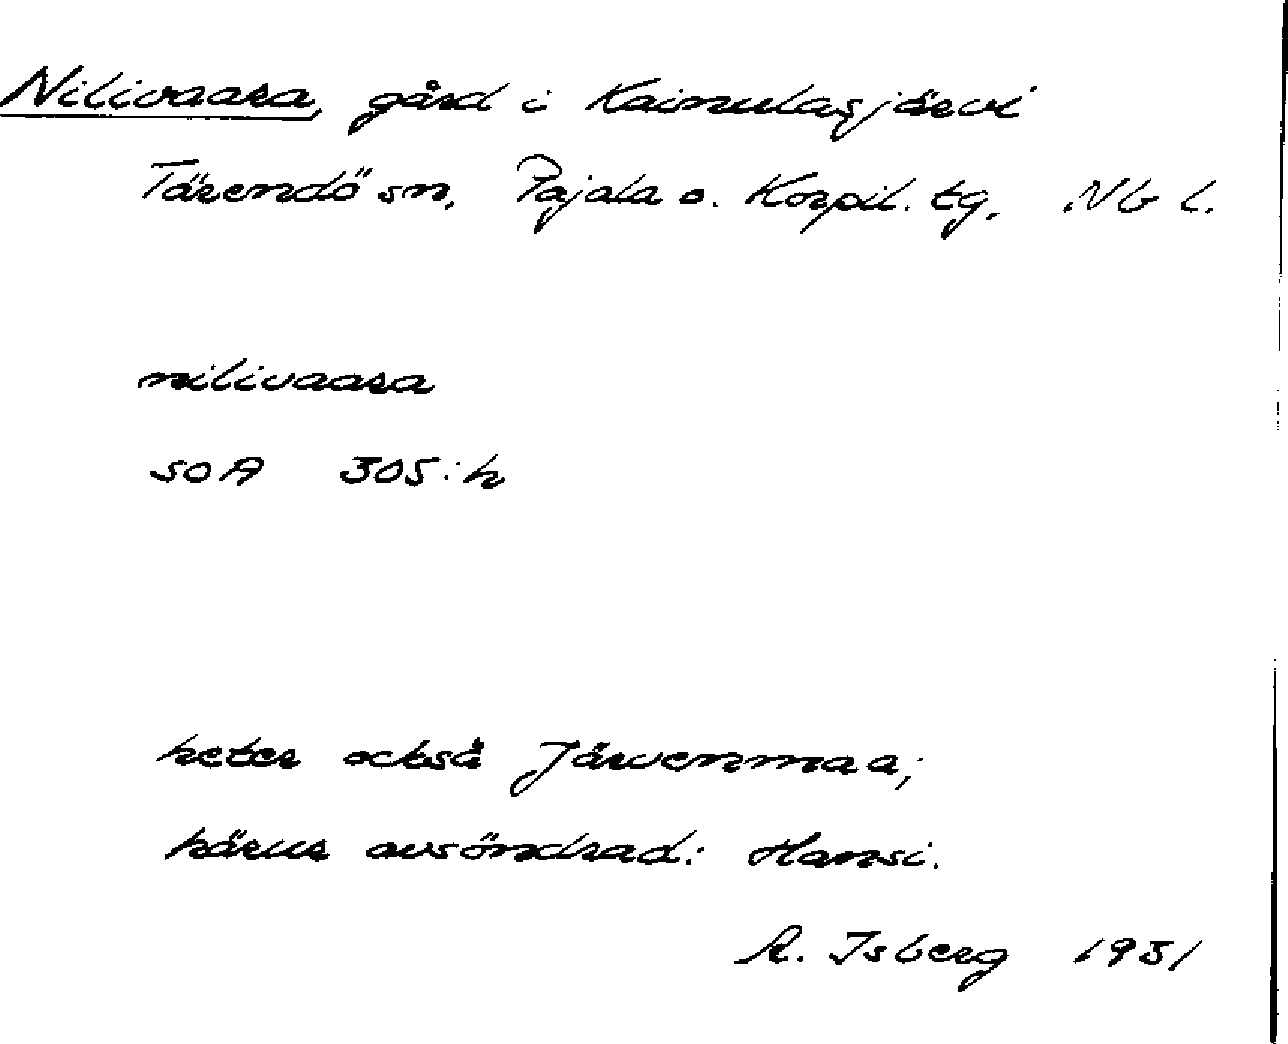 Nilivaara, gård i Kainulasjärvi
Tärendö sn, Pajala o. Korpil. tg, Nb l.
nilivaara
SOA 305:h
heter också Järvenmaa;
härur avsöndrad: Hansi.
R. Isberg 1931